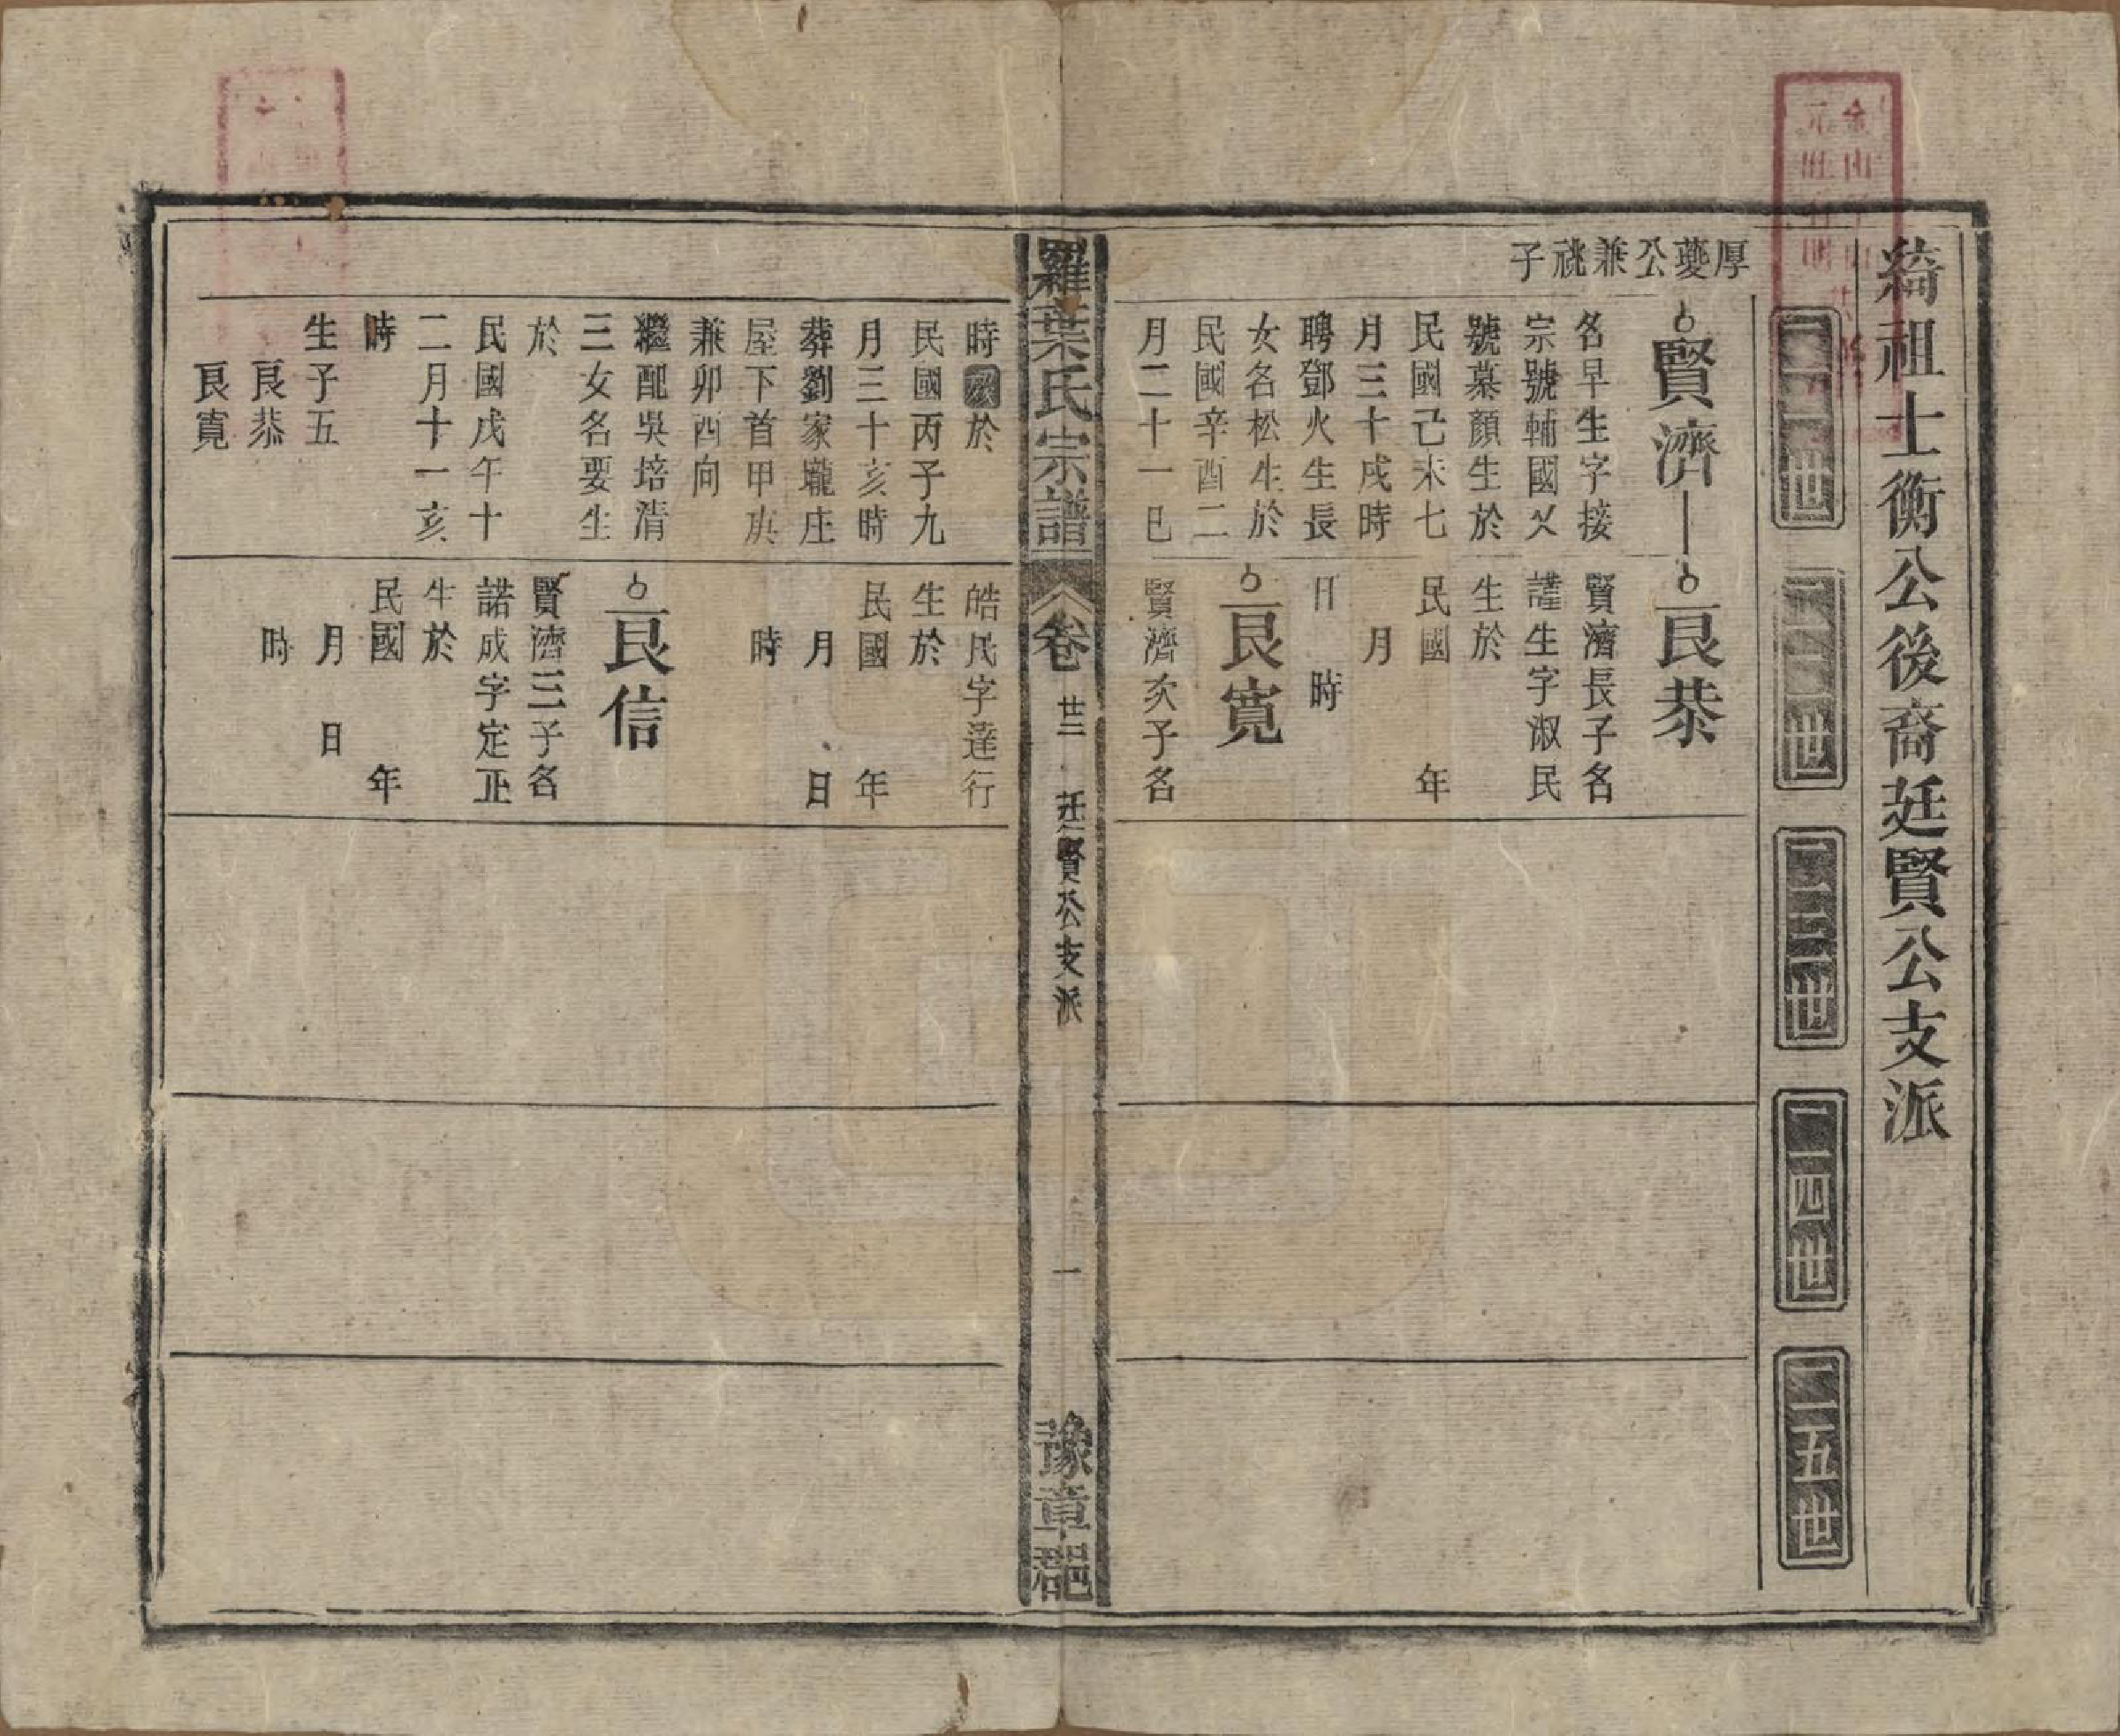 綺祖士衡公後裔廷賢公支派
二一世
二二世
二三世
二四世
二五世
厚夔公兼祧子
賢濟
名早生字接
宗號輔國又
號慕顏生於
民國己未七
月三十戌時
聘鄧火生長
女名松生於
民國辛酉二
月二十一巳
時歿於
民國丙子九
月三十亥時
葬劉家壠庄
屋下首甲庚
兼卯酉向
繼配吳培清
三女名要生
於
民國戊午十
二月十一亥
時
生子五
良恭
良寬
良恭
賢濟長子名
謹生字淑民
生於
民國 年
月
日 時
良寬
賢濟次子名
皓民字達行
生於
民國 年
月 日
時
良信
賢濟三子名
諾成字定正
生於
民國 年
月 日
時
羅葉氏宗譜
卷 廿三 廷賢公支派
一
豫章郡